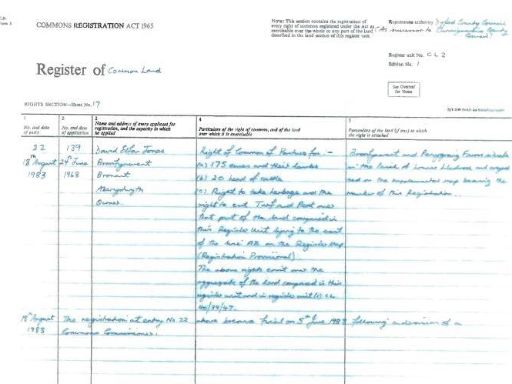 COMMONS REGISTRATION ACT 1965
Note: This section contains the registration of
every right of common registered under the Act as
exercisable over the whole or any part of the land
described in the land section of this register unit.
Registration authority Dyfed County Council
As successor to Cardiganshire County
Council
Register unit No. CL 2
Edition No. 1
See Overleaf
for Notes
Register of Common Land
RIGHTS SECTION—Sheet No. 17
1
2
3
4
5
No. and date
of entry
No. and date
of application
Name and address of every applicant for
registration, and the capacity in which
he applied
Particulars of the right of common, and of the land
over which it is exercisable
Particulars of the land (if any) to which
the right is attached
22
18th August
1983
139
24th June
1968
David Elfan Jones
Owner.
Right of Common of Pasture for -
(a) 175 ewes and their lambs
(b) 20 head of cattle
(c) Right to take herbage and the
right to cut Turf and Peat over
that part of the land comprised in
this Register Unit lying to the east
of the line AB on the Register Map
(Registration Provisional)
The above rights exist over the
aggregate of the land comprised in this
register unit and in register unit(s) CL
number of this Registration.
18th August
1983
The registration at entry No 22 above became final on 5th June 1983 following a decision of a
Commons Commissioner.